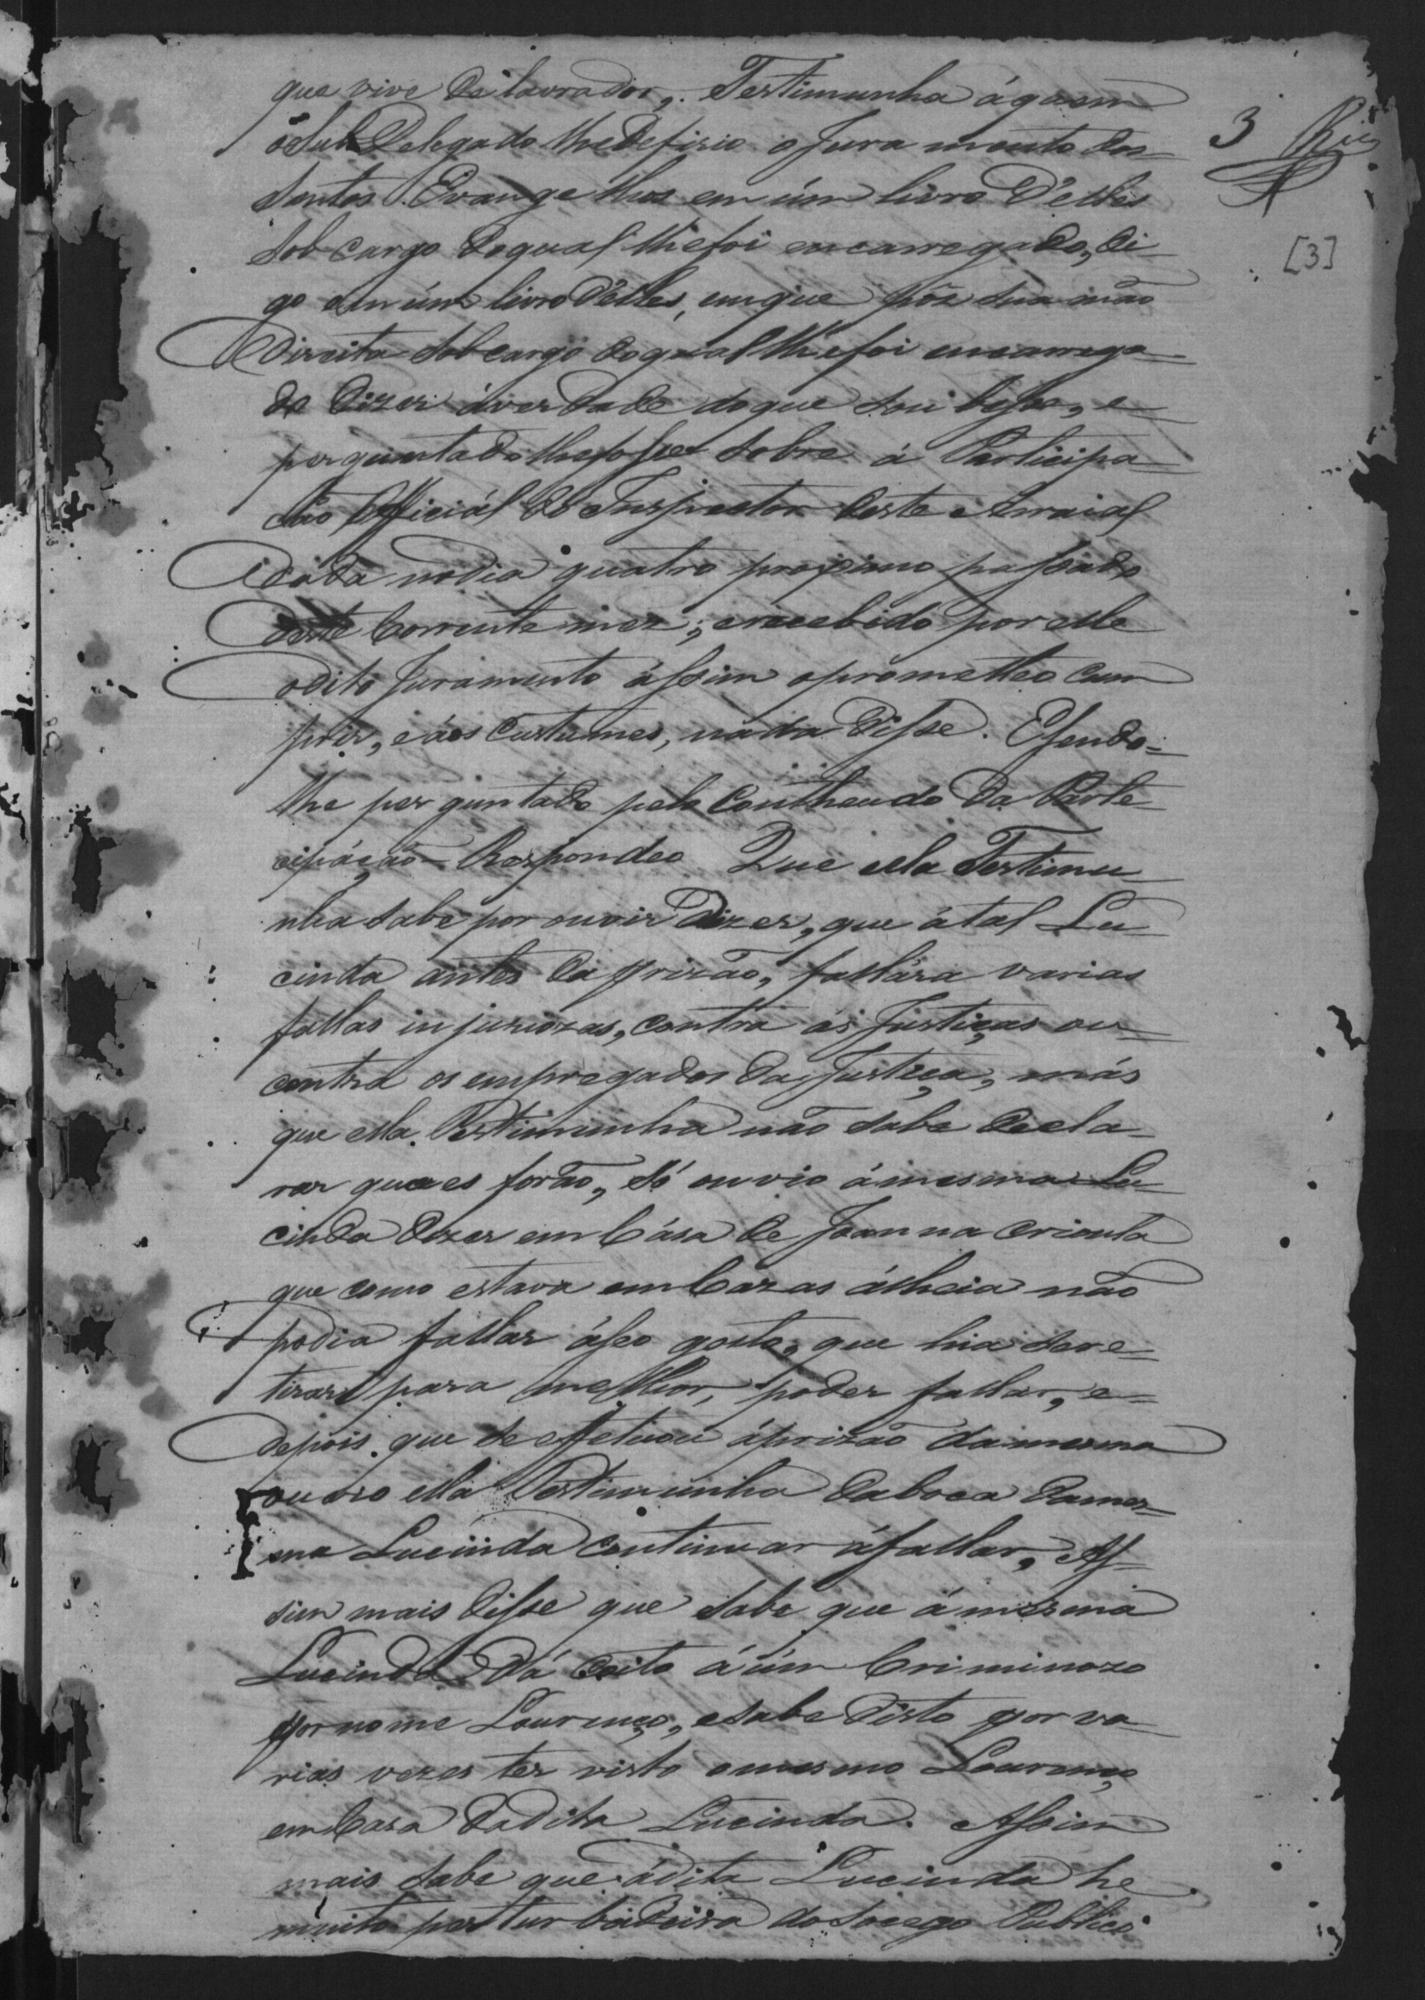 que vive de lavrador, Testimunha á quem
o Sub Delegado lhe defirio o Jura mento dos
Santos Evange lhos em úm livro D'elles
sob cargo do qual lhe foi encarregado, di-
go em úm livro D'elles, em que pôz sua mão
direita sob cargo do qual lhe foi encarrega-
do dizer á verdade do que soubesse, e
perguntado lhe fosse sobre á Participa-
ção Officiál do Inspector deste Arraial
dáda no dia quatro proximo passado
deste Corrente mez; e recebido por elle
o dito Juramento ássim o prometteo cum
prir, e áos Custumes, nada disse. E sendo-
lhe per guntado pelo Contheudo da Parte-
cipáção Respondeo Que ella Testimu
nha sabe por ouvir dizer, que á tal Lu-
cinda antes da prizão, fallára varias
fallas injuriozas, contra ás Justiças ou
contra os empregados da Justiça, más
que ella Testimunha não sabe decla-
rar quaes forão, só ouvio á mesma Lu-
cinda dizer em Cása de Joanna Crioula
que como estava em Cazas álheia não
podia fallar á seo gosto, que hia se re-
tirar para melhor, poder fallar, e-
depois que se effetuou á prizão da mesma
ouvio ella Testimunha da boca da mes-
ma Lucinda continuar á fallar, As-
sim mais disse que sabe que á mesma
Lucinda dá Coito á úm Criminozo
por nome Lourenço, e sabe disto por va-
rias vezes ter visto o mesmo Lourenço
em Casa da dita Lucinda. Assim
mais sabe que á dita Lucinda he
muito pertur badeira do socego Publico
3
[3]